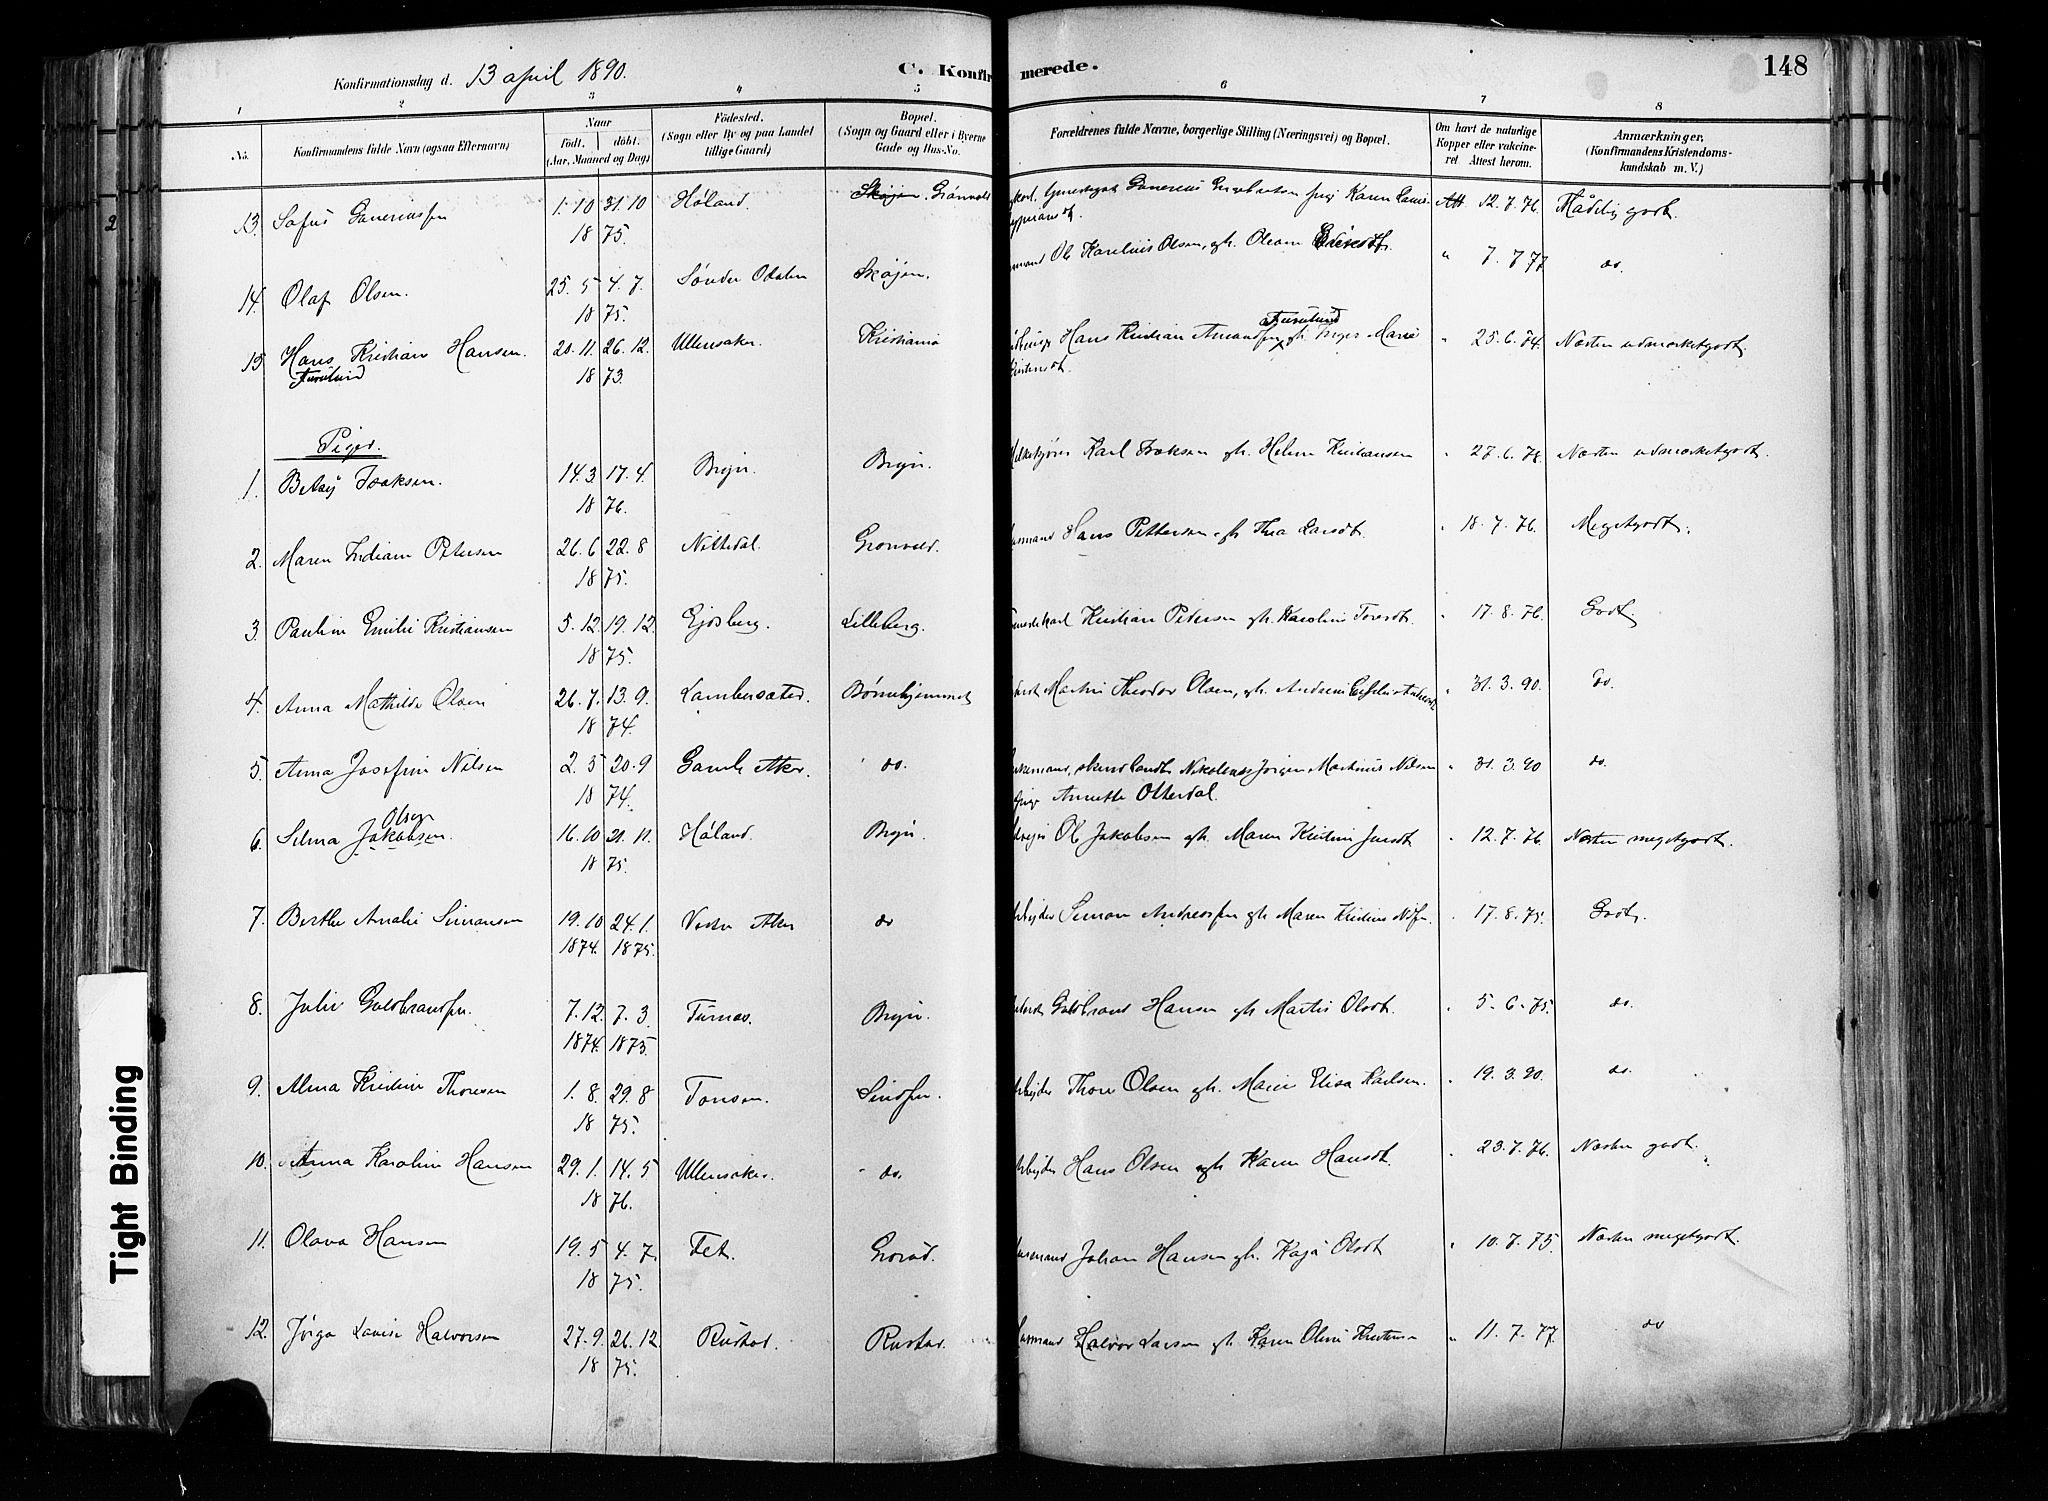 148
Konfirmationsdag d. 13 april 1890.
C. Konfirmerede.
1 2 3 4 5 6 7 8
No.
Konfirmandens fulde Navn (ogsaa Efternavn)
Naar
født. døbt.
(Aar, Maaned og Dag)
Fødested.
(Sogn eller By og paa Landet
tillige Gaard)
Bopæl.
(Sogn og Gaard eller i Byerne
Gade og Hus-No.
Forældrenes fulde Navne, borgerlige Stilling (Næringsvei) og Bopæl.
Om havt de naturlige
Kopper eller vakcine-
ret Attest herom.
Anmærkninger,
(Konfirmandens Kristendoms-
kundskab m. V.)
2
13. Sofus 1. 10 31. 10 Høland. Skøjen. Grønvold Karen Att 12. 7. 76. Mådelig godt.
18 75.
14. Olaf Olsen. 25. 5 4. 7. Søndre Odalen Skøjen. Karelius Olsen, gh. " 7. 7 77 do.
18 75.
15 Hans Kristian Hansen. 20. 11. 26. 12. Ullensaker Kristiania Hans Kristian gh. Inger Marie " 25. 6. 74. Næsten udmærketgodt.
Furulund 18 73. Furulund
Piger.
1. Betsy Isaksen. 14. 3 17. 4. Bryn. Bryn. Karl Isaksen gh. Helene Kristiansen " 27. 6. 78. Næsten udmærketgodt.
18 76.
2. Maren Indiane Petersen 26. 6 22. 8 Nittedal. Grønvold. Hans Pettersen gh. Thea Larsdt. " 18. 7. 76. Megetgodt.
18 75.
3. Pauline Emilie Kristiansen 5. 12. 19. 12. Lilleberg. Kristian Pedersen gh. Karoline " 17. 8. 76. Godt.
18 75.
4. Anna Mathilde Olsen 26. 7. 13. 9. Lambersæter. Børnehjemmet Martin Theodor Olsen, gh. " 31. 3. 90. do.
18 74.
5. Anna Josefine Nilsen 2. 5 20. 9 Gamle Aker. do. Jørgen Martinus Nilsen " 31. 3. 90 do.
18 74. Annette Otterdal.
Olsen
6. Selma Jakobsen. 16. 10 21. 11. Høland. Bryn. Ole Jakobsen gh. Maren Kristine " 12. 7. 76. Næsten megetgodt.
18 75.
7. Berthe Amalie Simonsen 19. 10 24. 1. Vestre Aker do Arbejder Simon gh. Maren Kristine " 17. 8. 75. Godt.
1874. 1875.
8. Julie Guldbrandsen. 7. 12. 7. 3 Bryn. Guldbrand Hansen gh. Marthe Olsdt. " 5-6-75. do.
1874. 1875.
9. Alma Kristine Thoresen 1. 8. 29. 8 Tonsen. Sinsen. Arbejder Thore Olsen gh. Marie Elisa Karlsen. " 19. 3. 90. do.
18 75.
10. Anna Karoline Hansen 29. 1. 14. 5 Ullensaker. do. Arbejder Hans Olsen gh. Karen Hansdt. " 23. 7. 76. Næsten godt.
18 76.
11. Olava Hansen 19. 5 4. 7. Fet. Grorud. Johan Hansen gh. Kaja Olsdt " 10. 7. 75. Næsten megetgodt.
18 75.
12. Jørga Lovise Halvorsen 27. 9. 26. 12. Rustad. Rustad. Halvor Larsen gh. Karen Oline Kristensen " 11. 7. 77. do
18 75.
Tight Binding